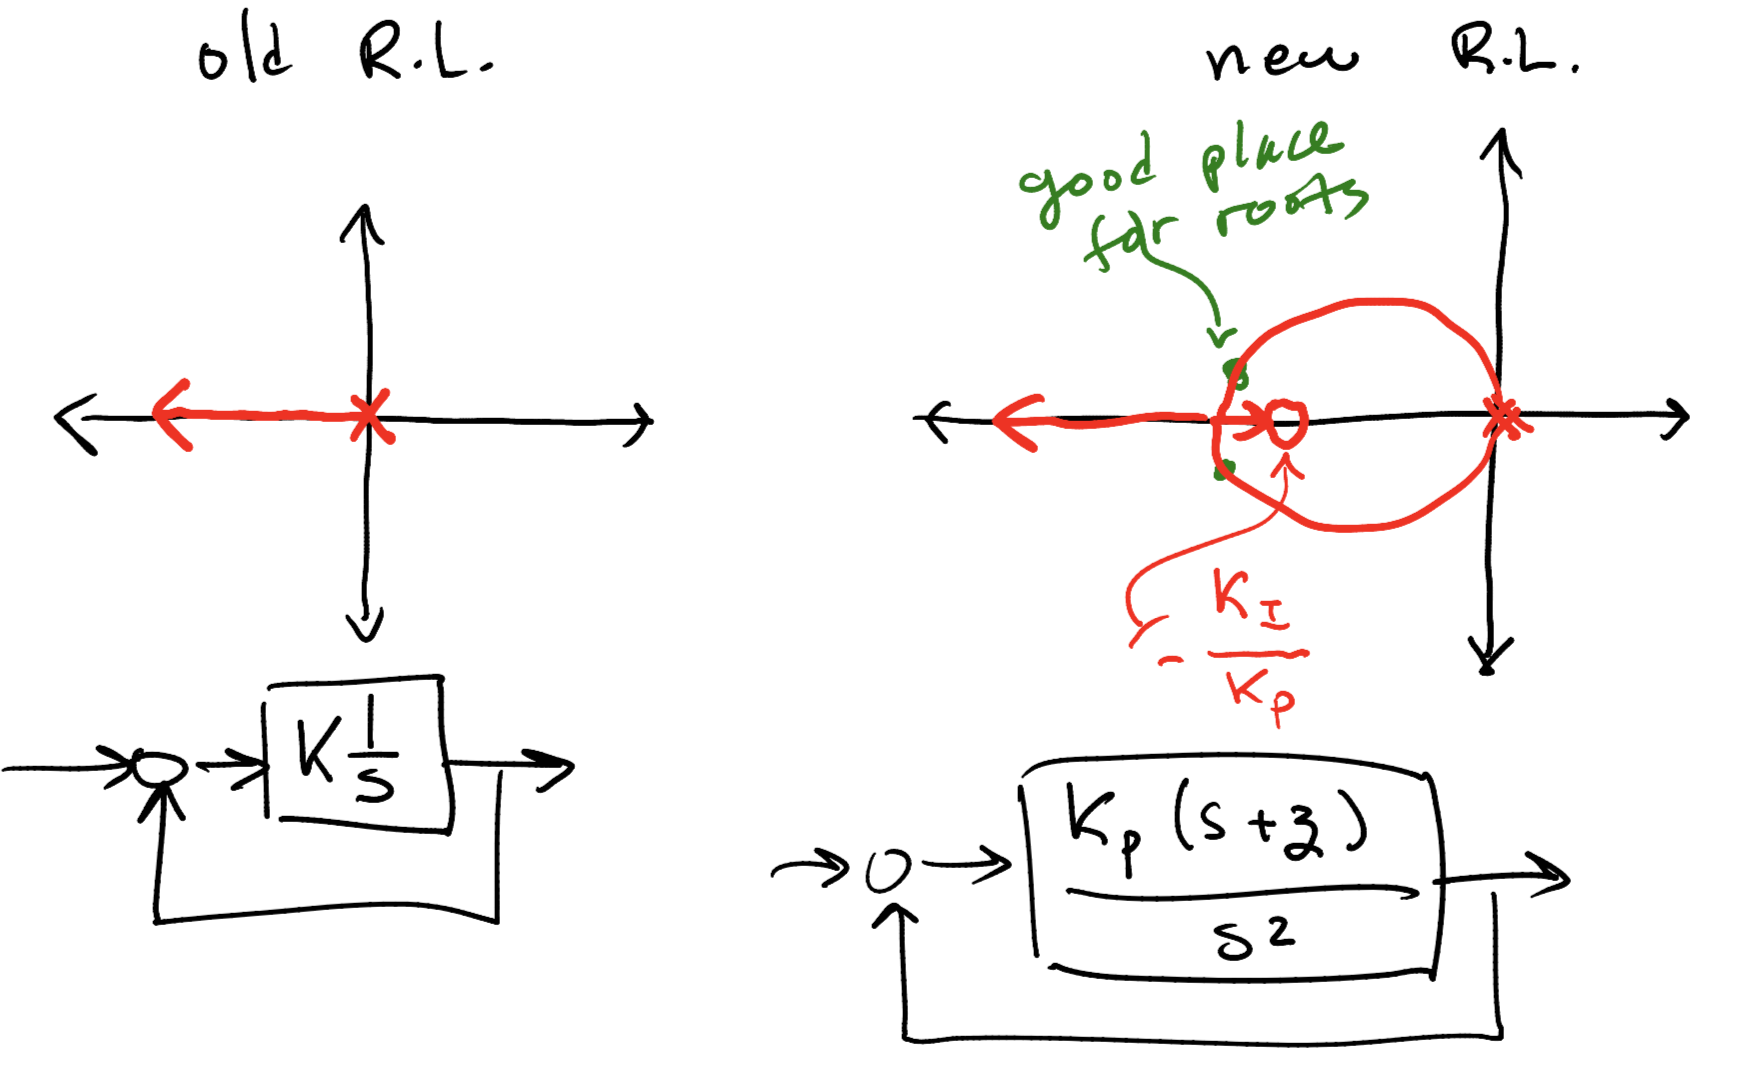 old R.L.
new R.L.
good place
for roots
- K_I / K_P
K 1/s
K_P (s+z) / s^2